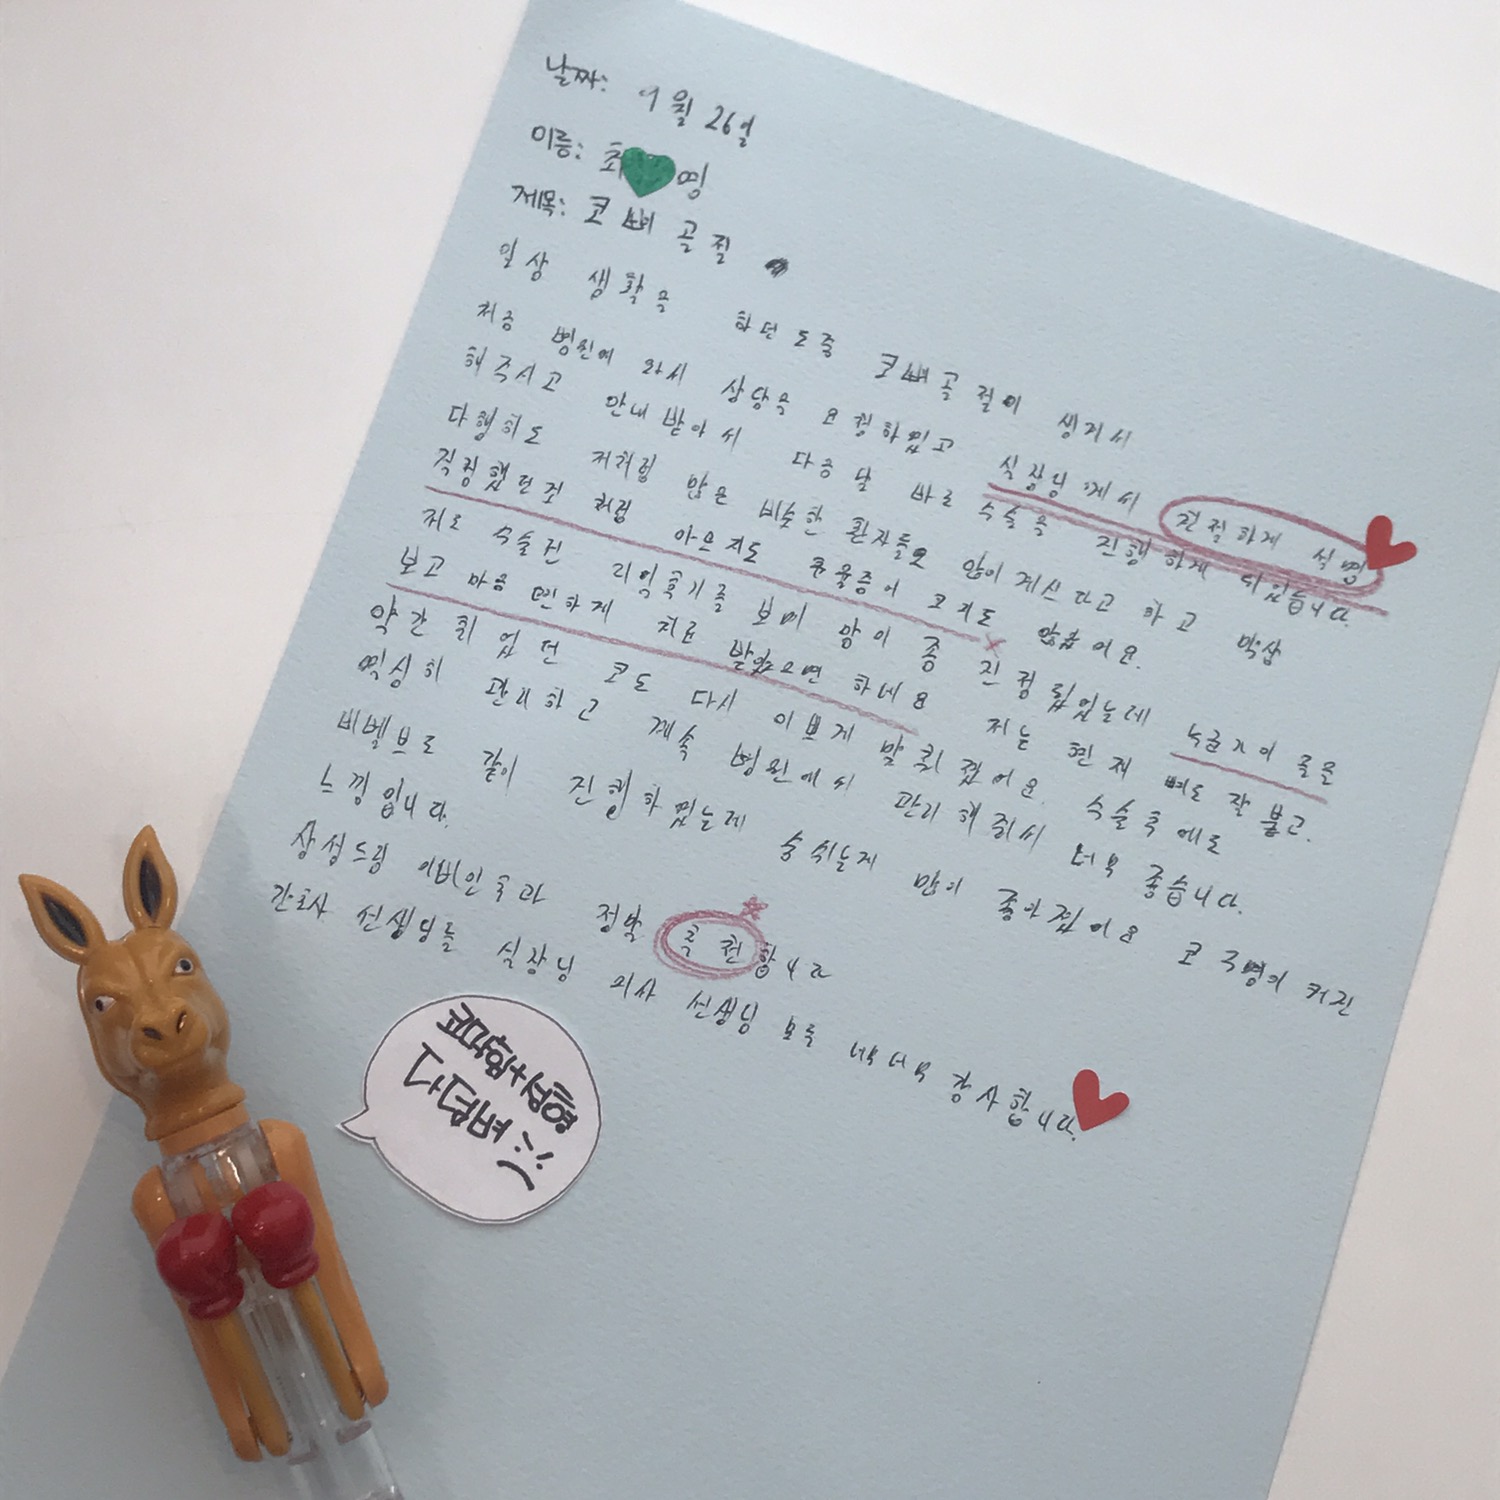 날짜: 9월 26일
이름: 최 영
제목: 코뼈 골절
일상 생활을 하던 도중 코뼈골절이 생겨서
처음 병원에 와서 상담을 요청하였고 실장님께서 친절하게 설명
해주시고 안내받아서 다음날 바로 수술을 진행하게 되었습니다.
다행히도 저처럼 많은 비슷한 환자들도 많이 계신다고 하고 막상
걱정했던것 처럼 아프지도 후울증이 크지도 않았어요.
저도 수술전 리얼후기를 보며 맘이 좀 진정됬었는데 누군가 이 글을
보고 마음 편하게 치료 받았으면 하네요 저는 현재 뼈도 잘 붙고.
약간 휘었던 코도 다시 이쁘게 맞춰졌어요. 수술후에도
열심히 관리하고 계속 병원에서 관리해줘서 더욱 좋습니다.
비벨브도 같이 진행하였는데 숨쉬는게 많이 좋아졌어요 코 구멍이 커진
느낌입니다.
삼성드림이비인후과 정말 추천합니다
간호사 선생님들 실장님 의사 선생님 모두 너무너무 감사합니다.